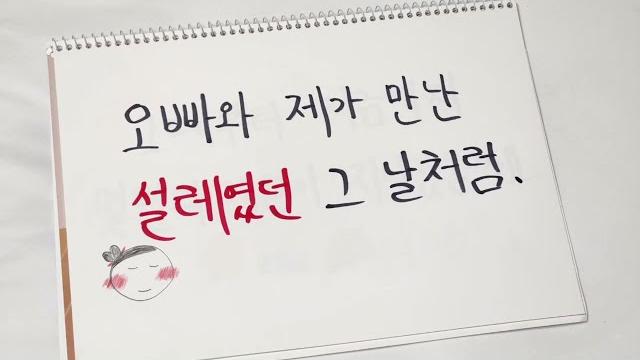 오빠와 제가 만난
설레였던 그 날처럼.